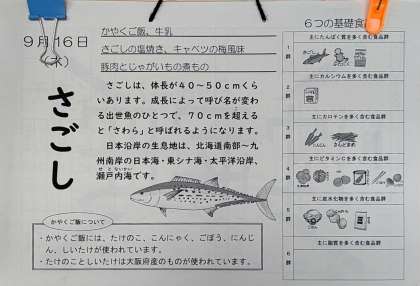 9月16日
(水)
かやくご飯、牛乳
さごしの塩焼き、キャベツの梅風味
豚肉とじゃがいもの煮もの
さごし
さごしは、体長が40~50cmくら
いあります。成長によって呼び名が変わ
る出世魚のひとつで、70cmを超える
と「さわら」と呼ばれるようになります。
日本沿岸の生息地は、北海道南部~九
州南岸の日本海・東シナ海・太平洋沿岸、
瀬戸内海です。
かやくご飯について
・かやくご飯には、たけのこ、こんにゃく、ごぼう、にんじ
ん、しいたけが使われています。
・たけのことしいたけは大阪府産のものが使われています。
6つの基礎食
1群
主にたんぱく質を多く含む食品群
2群
主にカルシウムを多く含む食品群
3群
主にカロテンを多く含む食品群
4群
主にビタミンCを多く含む食品群
5群
主に炭水化物を多く含む食品群
6群
主に脂質を多く含む食品群